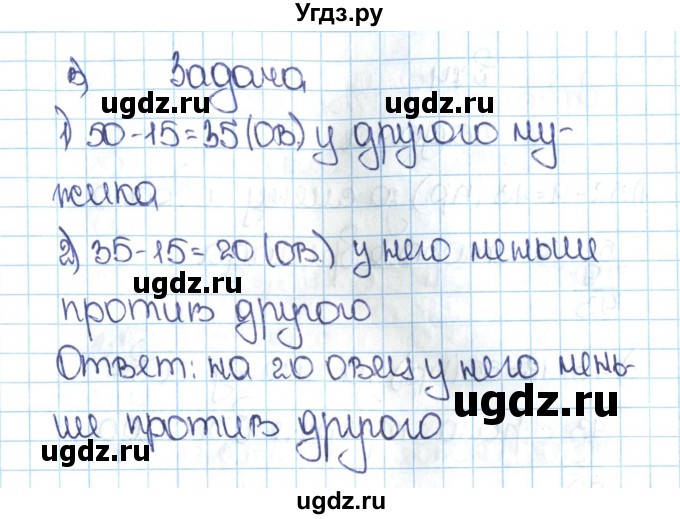 Угдз.ру
в) Задача
ugdz.ru ugdz.ru
1) 50-15=35 (ОВ.) у другого му-
жика
2) 35-15=20 (ОВ.) у него меньше
ugdz.ru ugdz.ru
против другого
Ответ: на 20 овец у него мень-
ugdz.ru
ше против другого
ugdz.ru
ugdz.ru